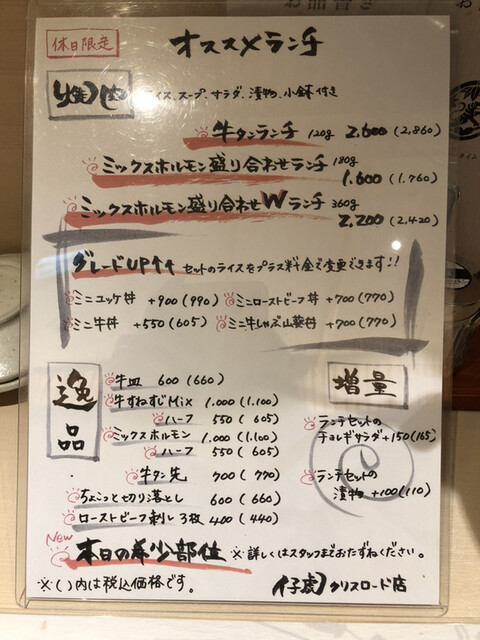 休日限定
オススメランチ
焼肉
ライス、スープ、サラダ、漬物、小鉢付き
牛タンランチ 120g 2,600 (2,860)
ミックスホルモン盛り合わせランチ 180g
1,600 (1,760)
ミックスホルモン盛り合わせWランチ 360g
2,200 (2,420)
グレードUP↑↑ セットのライスをプラス料金で変更できます!!
ミニユッケ丼 +900 (990) ミニローストビーフ丼 +700 (770)
ミニ牛丼 +550 (605) ミニ牛しゃぶ山葵丼 +700 (770)
逸品
牛皿 600 (660)
牛すねすじMix 1,000 (1,100)
ハーフ 550 (605)
ミックスホルモン 1,000 (1,100)
ハーフ 550 (605)
牛タン先 700 (770)
ちょこっと切り落とし 600 (660)
ローストビーフ刺し 3枚 400 (440)
増量
ランチセットの
チョレギサラダ +150 (165)
ランチセットの
漬物 +100 (110)
New
本日の希少部位 ※詳しくはスタッフまでおたずねください。
※( )内は税込価格です。
仔虎 クリスロード店
お品書き